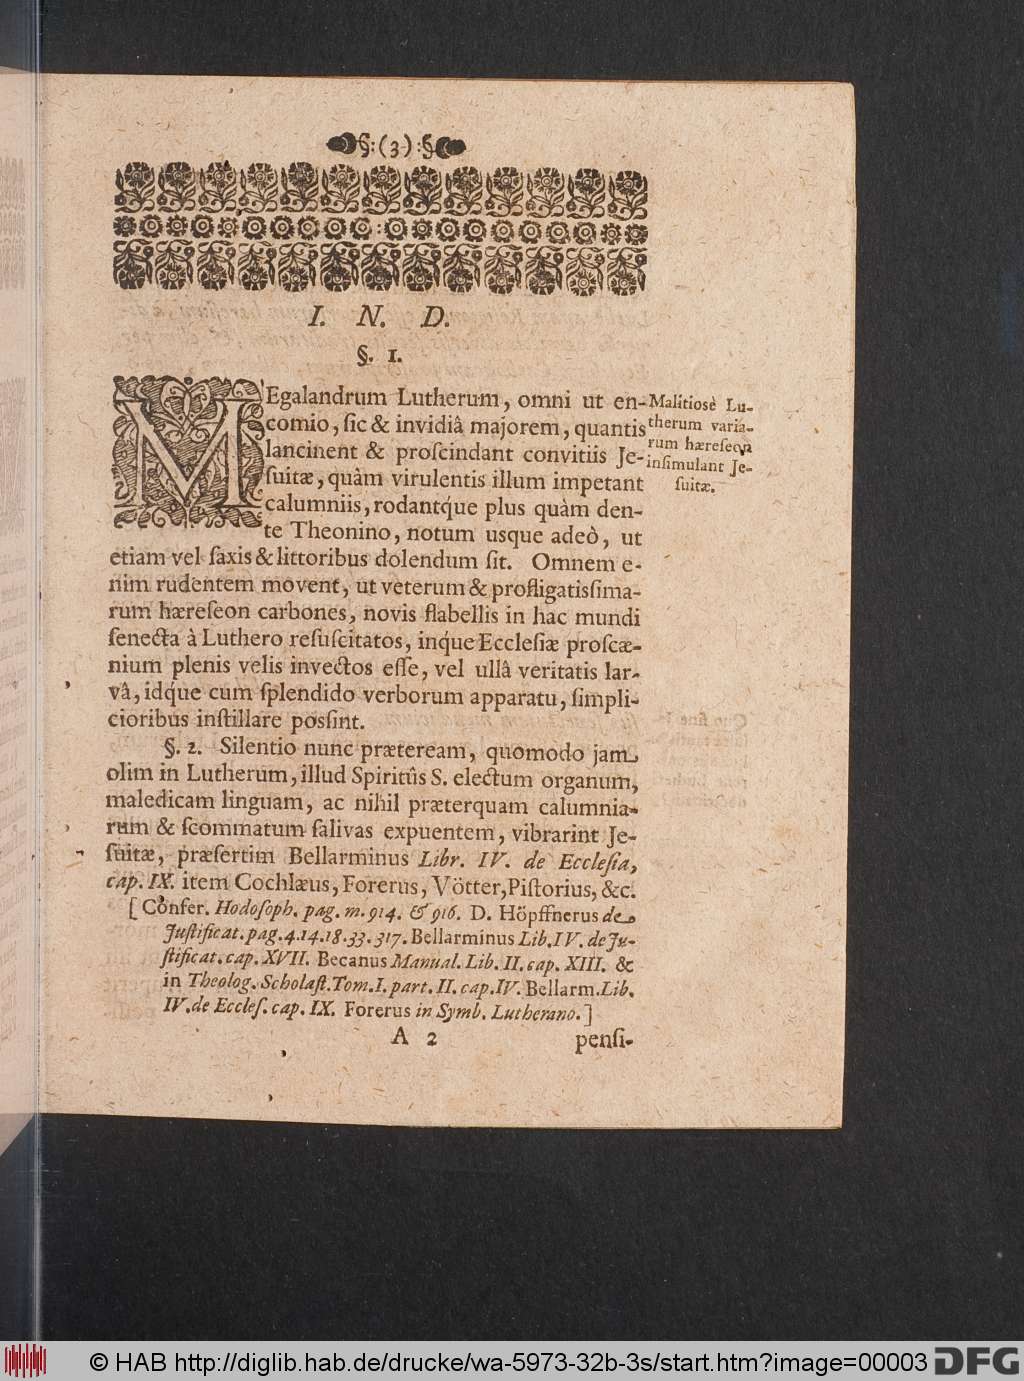 §:(3):§
I. N. D.
§. 1.
MEgalandrum Lutherum, omni ut en-
comio, sic & invidiâ majorem, quantis
lancinent & proscindant convitiis Je-
suitæ, quàm virulentis illum impetant
calumniis, rodantq́ue plus quàm den-
te Theonino, notum usque adeò, ut
etiam vel saxis & littoribus dolendum sit. Omnem e-
nim rudentem movent, ut veterum & profligatissima-
rum hæreseon carbones, novis flabellis in hac mundi
senecta à Luthero resuscitatos, inq́ue Ecclesiæ proscæ-
nium plenis velis invectos esse, vel ullâ veritatis lar-
vâ, idq́ue cum splendido verborum apparatu, simpli-
cioribus instillare possint.
Malitiosè Lu-
therum varia-
rum hæreseon
insimulant Je-
suitæ.
§. 2. Silentio nunc præteream, quomodo jam
olim in Lutherum, illud Spiritûs S. electum organum,
maledicam linguam, ac nihil præterquam calumnia-
rum & scommatum salivas expuentem, vibrarint Je-
suitæ, præsertim Bellarminus Libr. IV. de Ecclesia,
cap. IX. item Cochlæus, Forerus, Vötter, Pistorius, &c.
[ Confer. Hodosoph. pag. m. 914. & 916. D. Höpffnerus de
Justificat. pag. 4. 14. 18. 33. 317. Bellarminus Lib. IV. de Ju-
stificat. cap. XVII. Becanus Manual. Lib. II. cap. XIII. &
in Theolog. Scholast. Tom. I. part. II. cap. IV. Bellarm. Lib.
IV. de Eccles. cap. IX. Forerus in Symb. Lutherano. ]
A 2 pensi-
© HAB http://diglib.hab.de/drucke/wa-5973-32b-3s/start.htm?image=00003 DFG